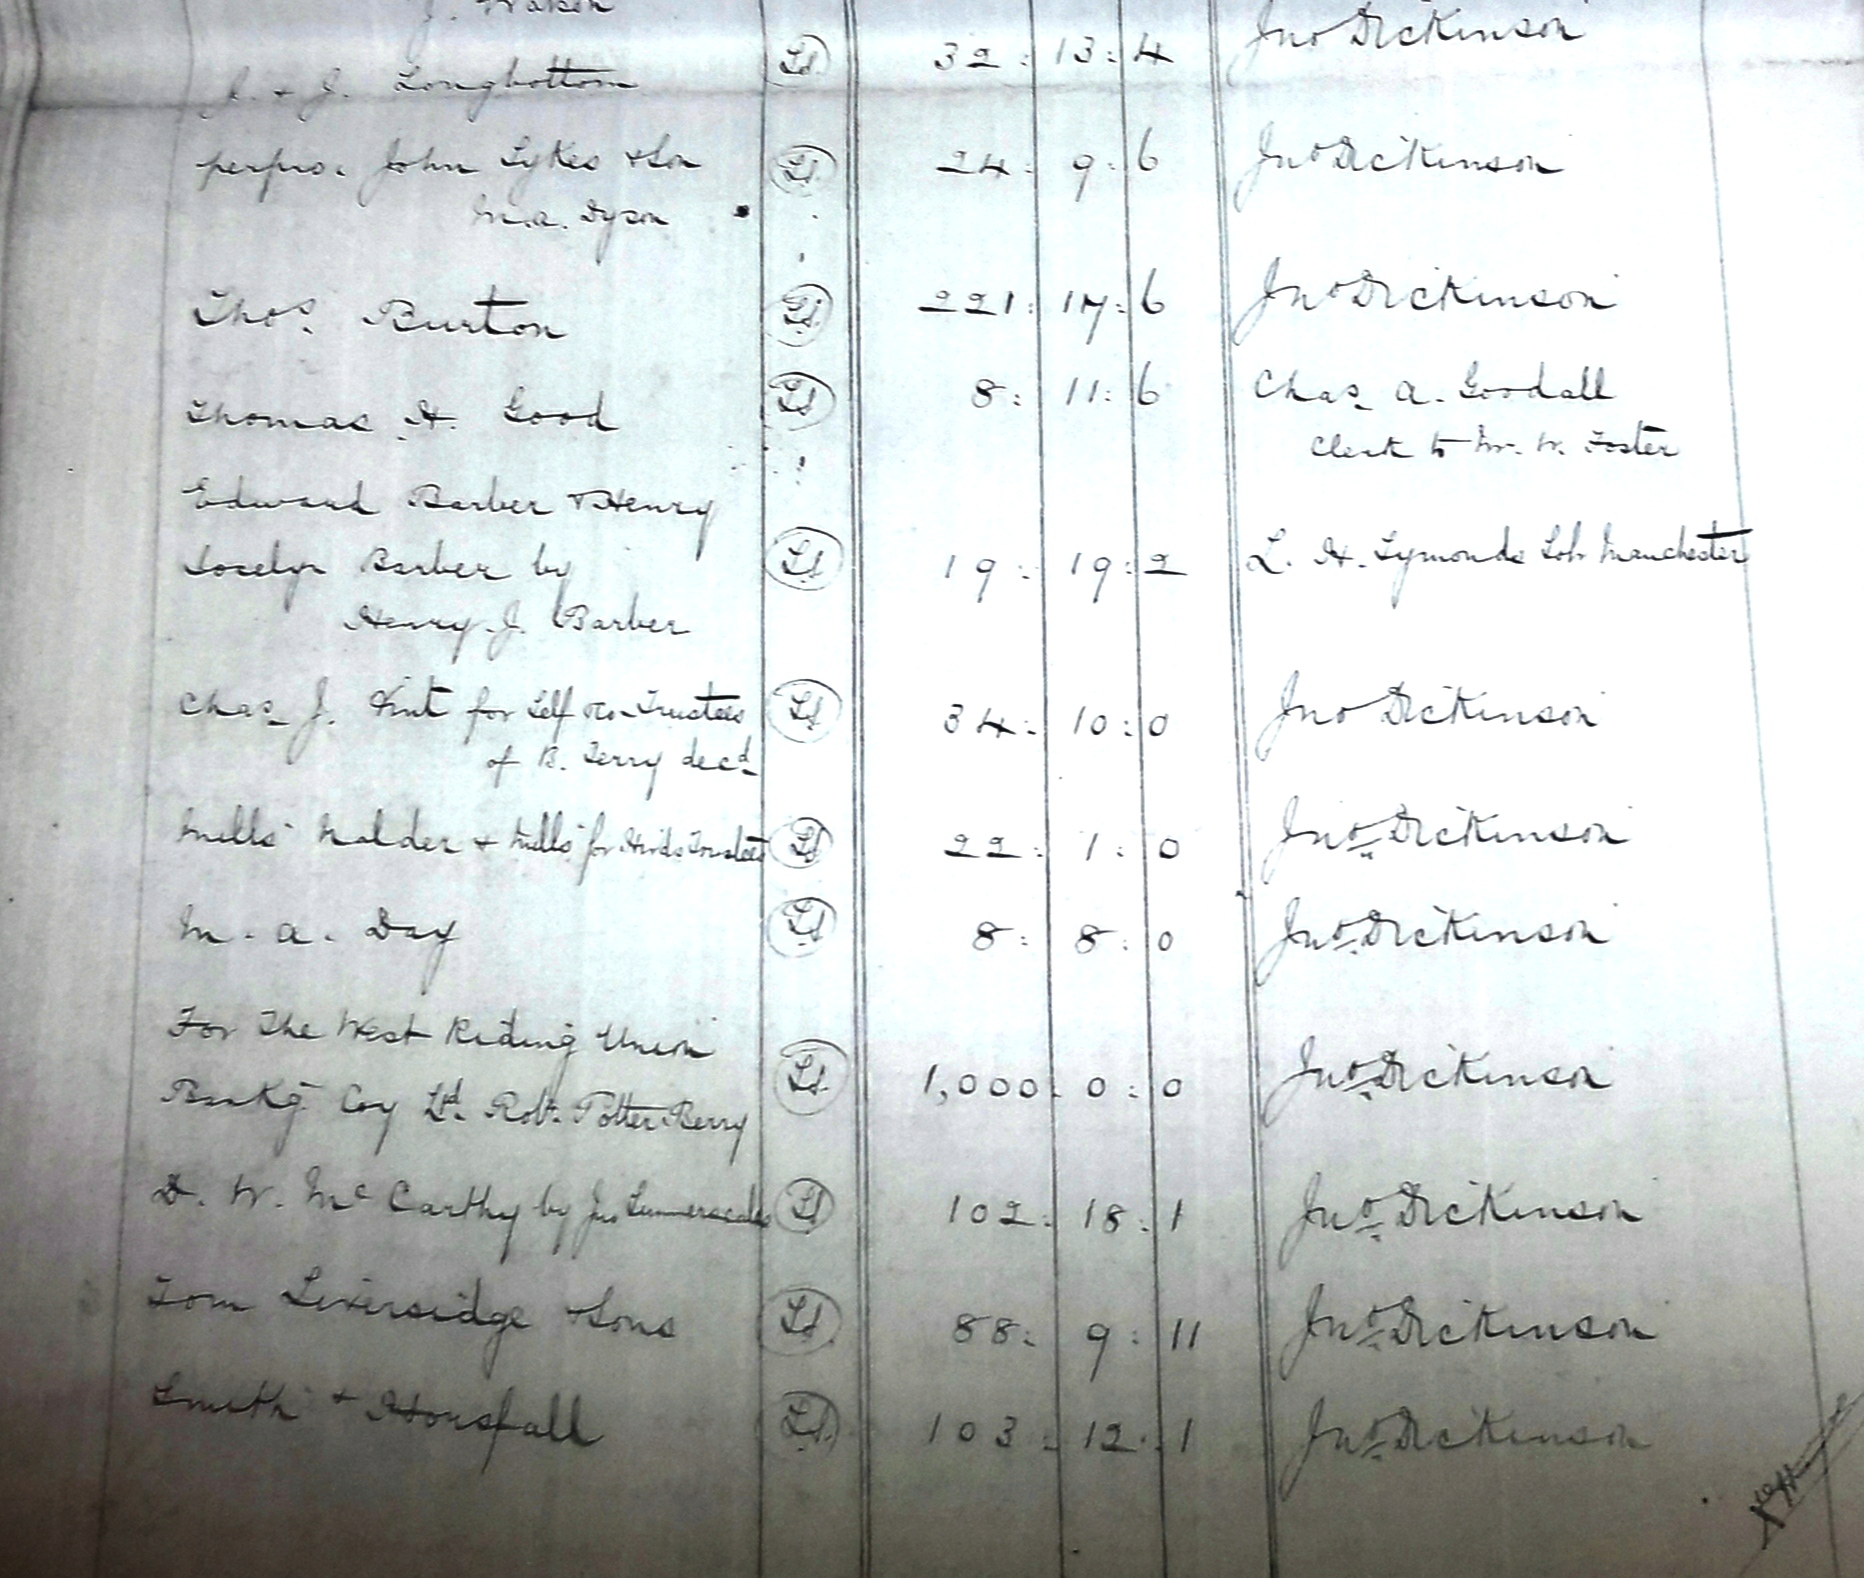 J. & J. Longbottom (Ls) 32 : 13 : 4 Jno Dickinson
perpro. John Sykes & Son (Ls) 24 : 9 : 6 Jno Dickinson
M.A. Dyson
Thos. Burton (Ls) 221 : 17 : 6 Jno Dickinson
Thomas H. Good (Ls) 8 : 11 : 6 Chas. A. Goodall
Clerk to Mr. W. Foster
Edward Barber & Henry
Jocelyn Barber by (Ls) 19 : 19 : 2 L. H. Symonds Solr Manchester
Henry J. Barber
Chas. J. for Self & co-Trustees (Ls) 34 : 10 : 0 Jno Dickinson
of B. Terry decd
Mills & Mills for Trustees (Ls) 22 : 1 : 0 Jno Dickinson
M. A. Day (Ls) 8 : 8 : 0 Jno Dickinson
For The West Riding Union
Bankg Coy Ld. Robt. Potter Berry (Ls) 1,000 : 0 : 0 Jno Dickinson
D. W. McCarthy by Jno Summerscales (Ls) 102 : 18 : 1 Jno Dickinson
Tom Liversidge & Sons (Ls) 88 : 9 : 11 Jno Dickinson
Smith & Horsfall (Ls) 103 : 12 : 1 Jno Dickinson